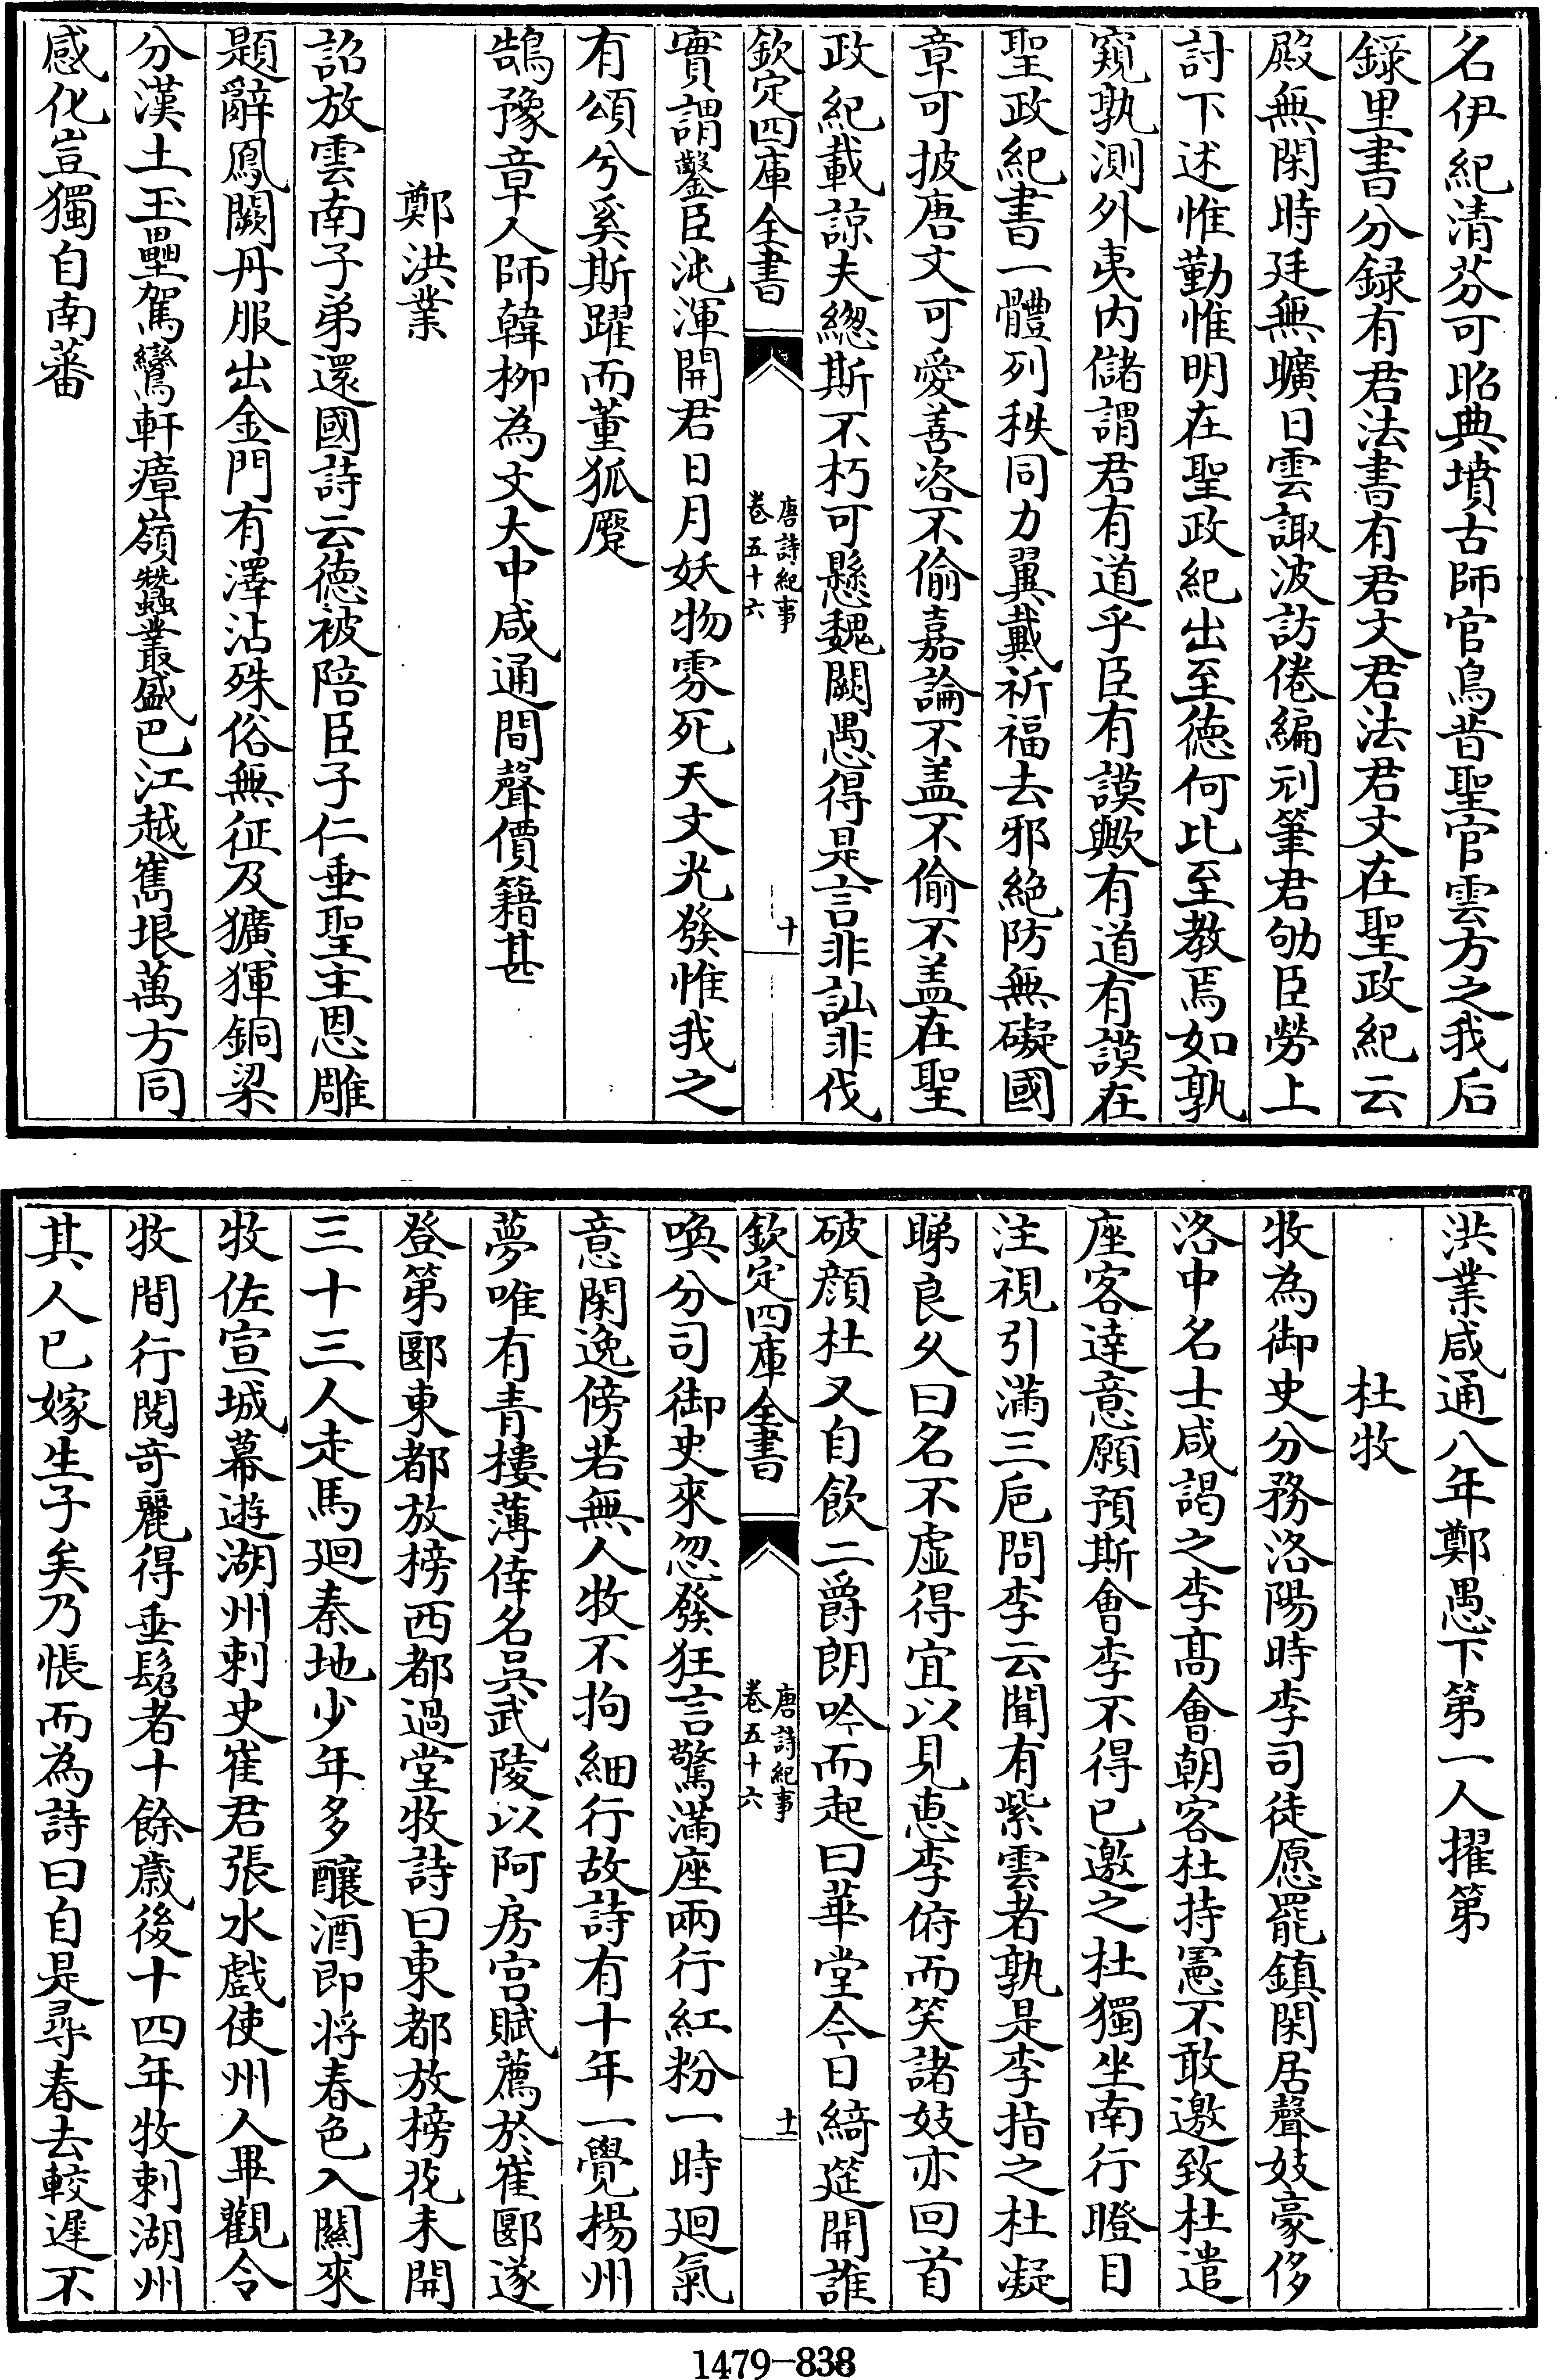 名伊紀清芬可昭典墳古師官鳥昔聖官雲方之我后
録里書分録有君法書有君文君法君文在聖政紀云
殿無閑時廷無曠日雲諏波訪倦編刓筆君劬臣勞上
討下述惟勤惟明在聖政紀出至徳何比至教焉如孰
窺孰測外夷内儲謂君有道乎臣有謨歟有道有謨在
聖政紀書一體列秩同力翼戴祈福去邪絶防無礙國
章可披唐文可愛善咨不偷嘉論不盖不偷不盖在聖
政紀載諒夫緫斯不朽可懸魏闕愚得是言非訕非伐
欽定四庫全書
唐詩紀事
卷五十六
十
實謂鑿臣沌渾開君日月妖物雰死天文光發惟我之
有頌兮奚斯躍而董狐蹷
鵠豫章人師韓柳為文大中咸通間聲價籍甚
鄭洪業
詔放雲南子弟還國詩云徳被陪臣子仁垂聖主恩雕
題辭鳳闕丹服出金門有澤沾殊俗無征及獷㺔銅梁
分漢土玉壘駕鸞軒瘴嶺蠶叢盛巴江越嶲垠萬方同
感化豈獨自南蕃
洪業咸通八年鄭愚下第一人擢第
杜牧
牧為御史分務洛陽時李司徒愿罷鎮閑居聲妓豪侈
洛中名士咸謁之李髙會朝客杜持憲不敢邀致杜遣
座客逹意願預斯會李不得已邀之杜獨坐南行瞪目
注視引滿三巵問李云聞有紫雲者孰是李指之杜凝
睇良久曰名不虛得宜以見恵李俯而笑諸妓亦回首
破顔杜又自飲二爵朗吟而起曰華堂今日綺筵開誰
欽定四庫全書
唐詩紀事
卷五十六
十一
喚分司御史來忽發狂言驚滿座兩行紅粉一時廻氣
意閑逸傍若無人牧不拘細行故詩有十年一覺楊州
夢唯有青樓薄倖名呉武陵以阿房宫賦薦於崔郾遂
登第郾東都放榜西都過堂牧詩曰東都放榜花未開
三十三人走馬廻秦地少年多釀酒即將春色入關來
牧佐宣城幕遊湖州刺史崔君張水戲使州人畢觀令
牧間行閱竒麗得垂髫者十餘歳後十四年牧刺湖州
其人已嫁生子矣乃悵而為詩曰自是尋春去較遲不
1479-838